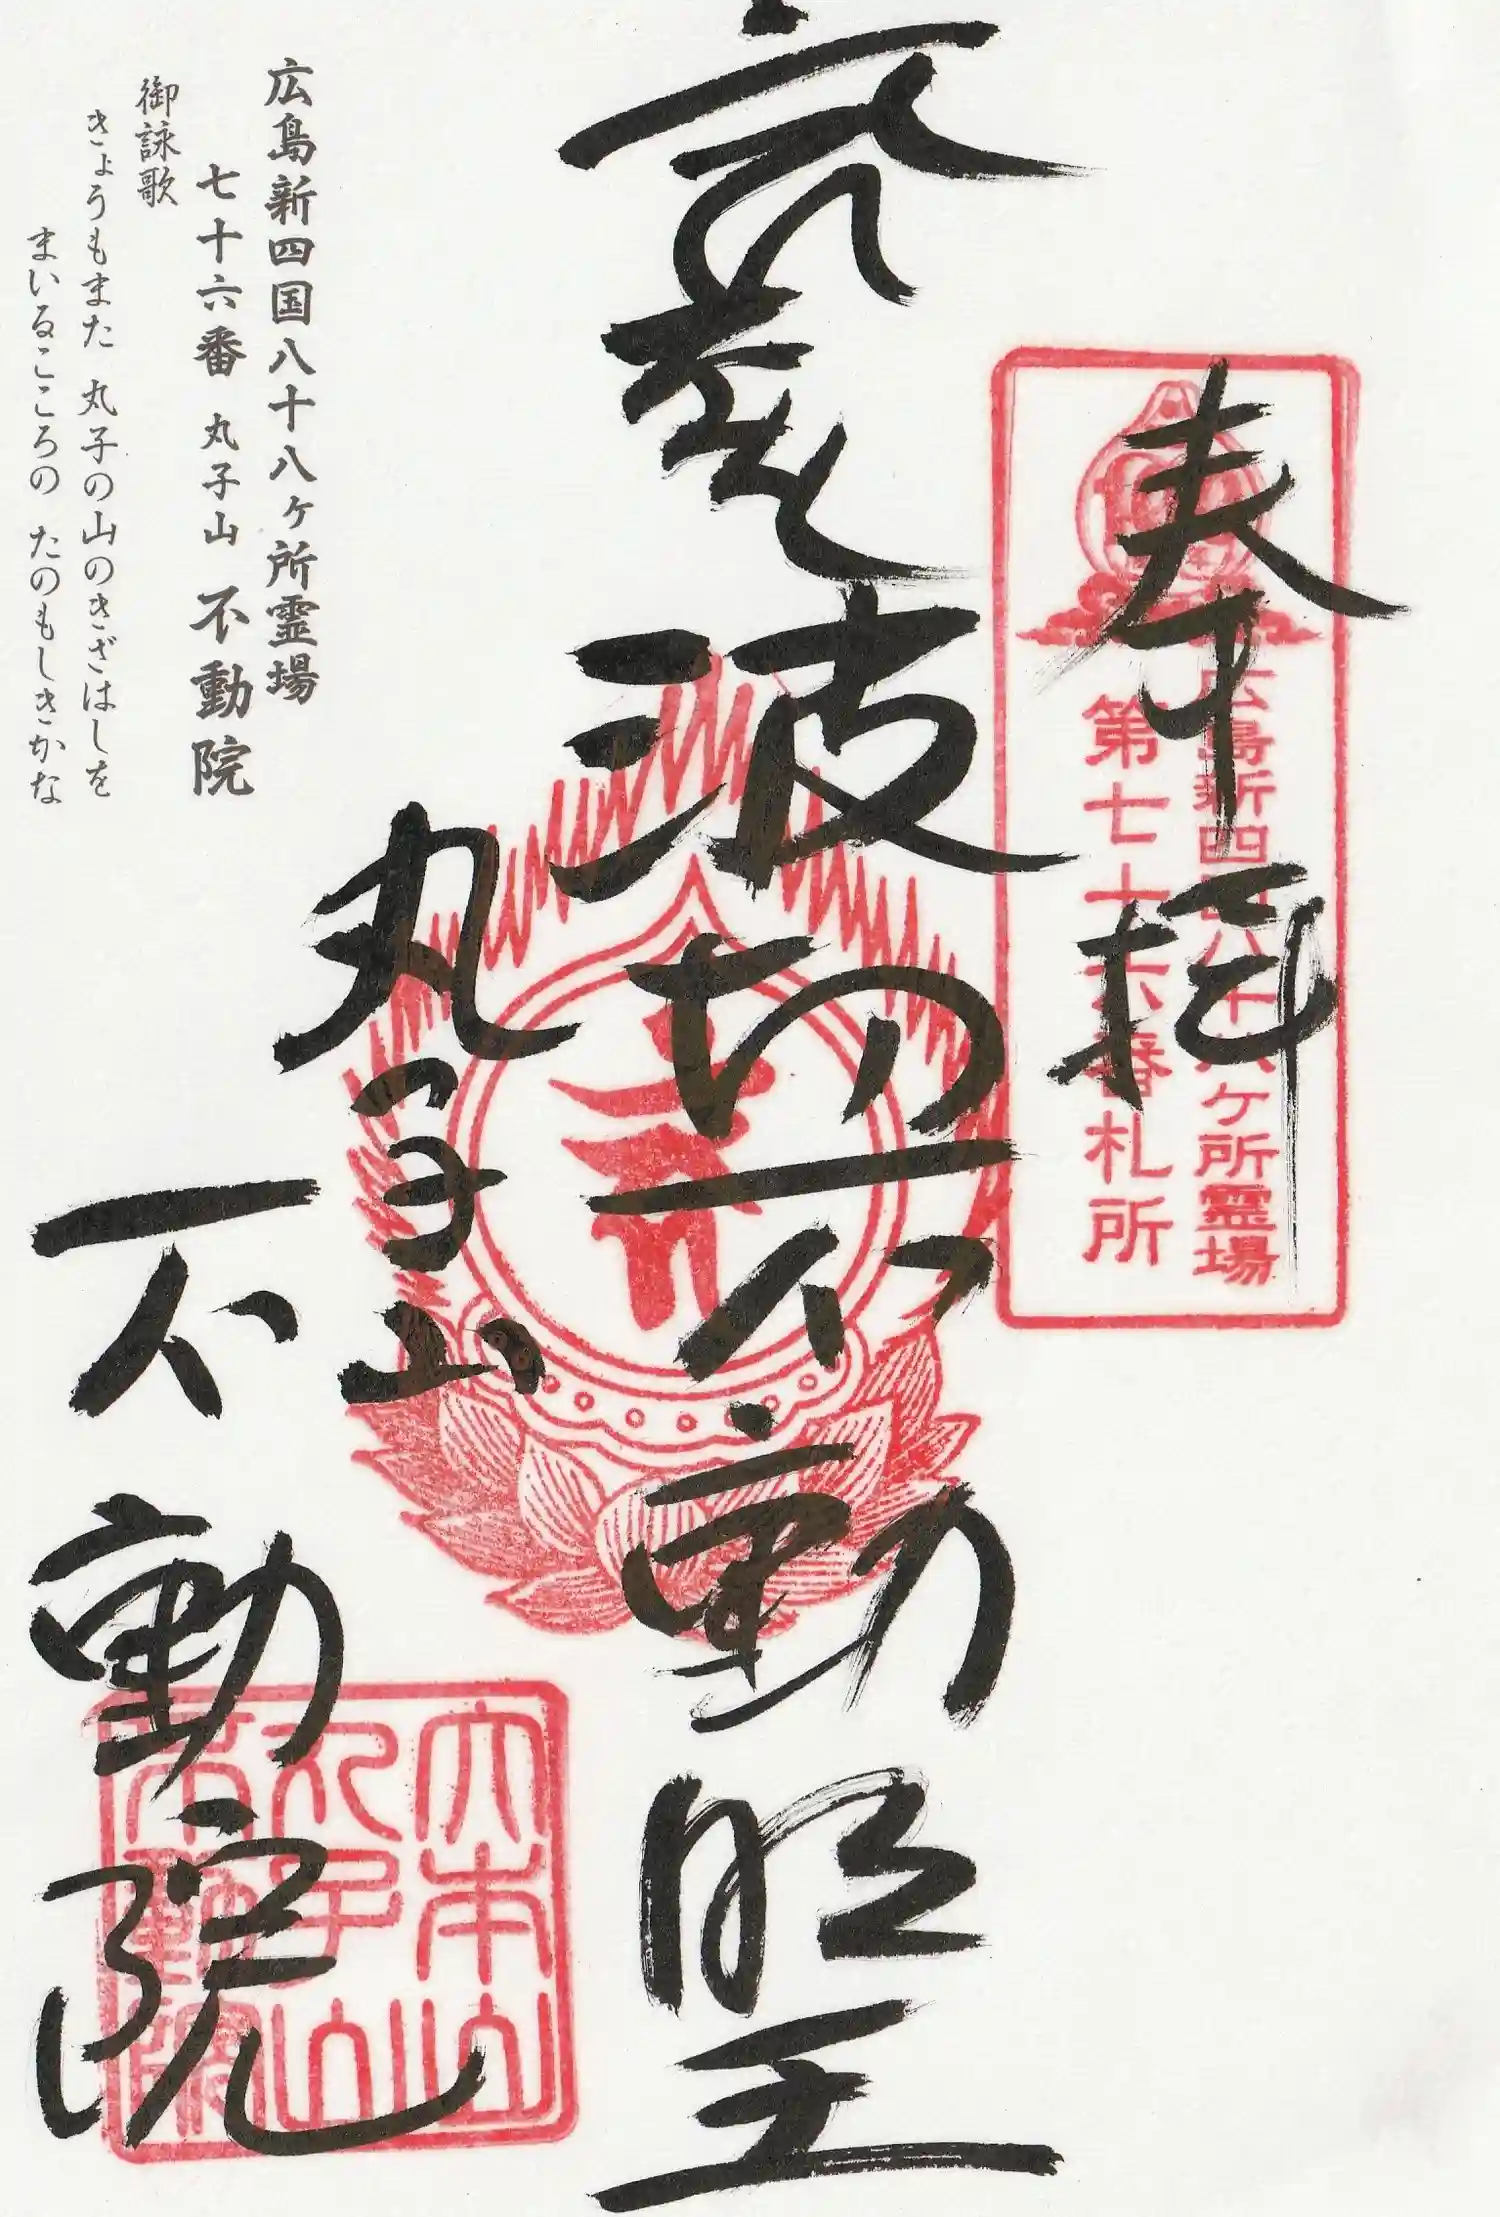 奉拝
広島新四国八十八ヶ所霊場
第七十六番札所
波切不動明王
丸子山
不動院
大本山
丸子山
不動院
広島新四国八十八ヶ所霊場
七十六番 丸子山 不動院
御詠歌
きょうもまた 丸子の山のきざはしを
まいるこころの たのもしきかな